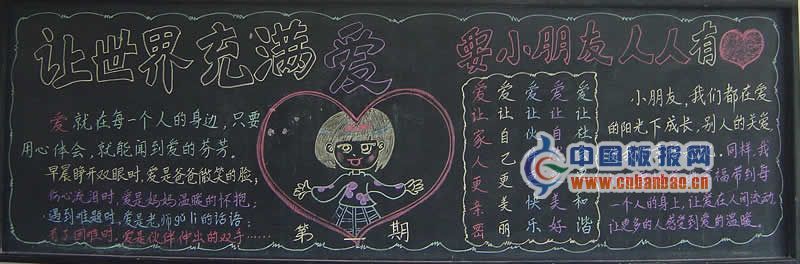 让世界充满爱
要小朋友人人有
爱就在每一个人的身边,只要
用心体会,就能闻到爱的芬芳。
早晨睁开双眼时,爱是爸爸微笑的脸;
伤心流泪时,爱是妈妈温暖的怀抱;
遇到难题时,爱是老师gǔ lì的话语;
有了困难时,爱是伙伴伸出的双手……
第 期
爱让家人更亲密
爱让自己更美丽
爱让伙 快乐
爱让 美好
爱让社 和谐
小朋友,我们都在爱
的阳光下成长,别人的关爱
同样,我
福带到每
一个人的身上,让爱在人间流动,
让更多的人感受到爱的温暖。
中国板报网
cnbanbao.cn